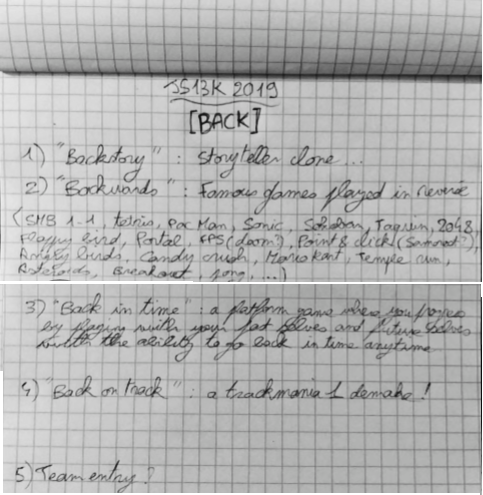 JS13K 2019
[BACK]
1) "Backstory" : storyteller clone ...
2) "Backwards" : Famous games played in reverse
(SMB 1-1, tetris, Pac Man, Sonic, Sokoban, Taquin, 2048,
Flappy bird, Portal, FPS (doom?), Point & click (Samorost?),
Angry birds, Candy crush, Mario kart, Temple run,
Asteroids, Breakout, pong, ...)
3) "Back in time" : a platform game where you progress
by playing with your past selves and future selves
with the ability to go back in time anytime
4) "Back on track" : a trackmania 1 demake !
5) Team entry ?